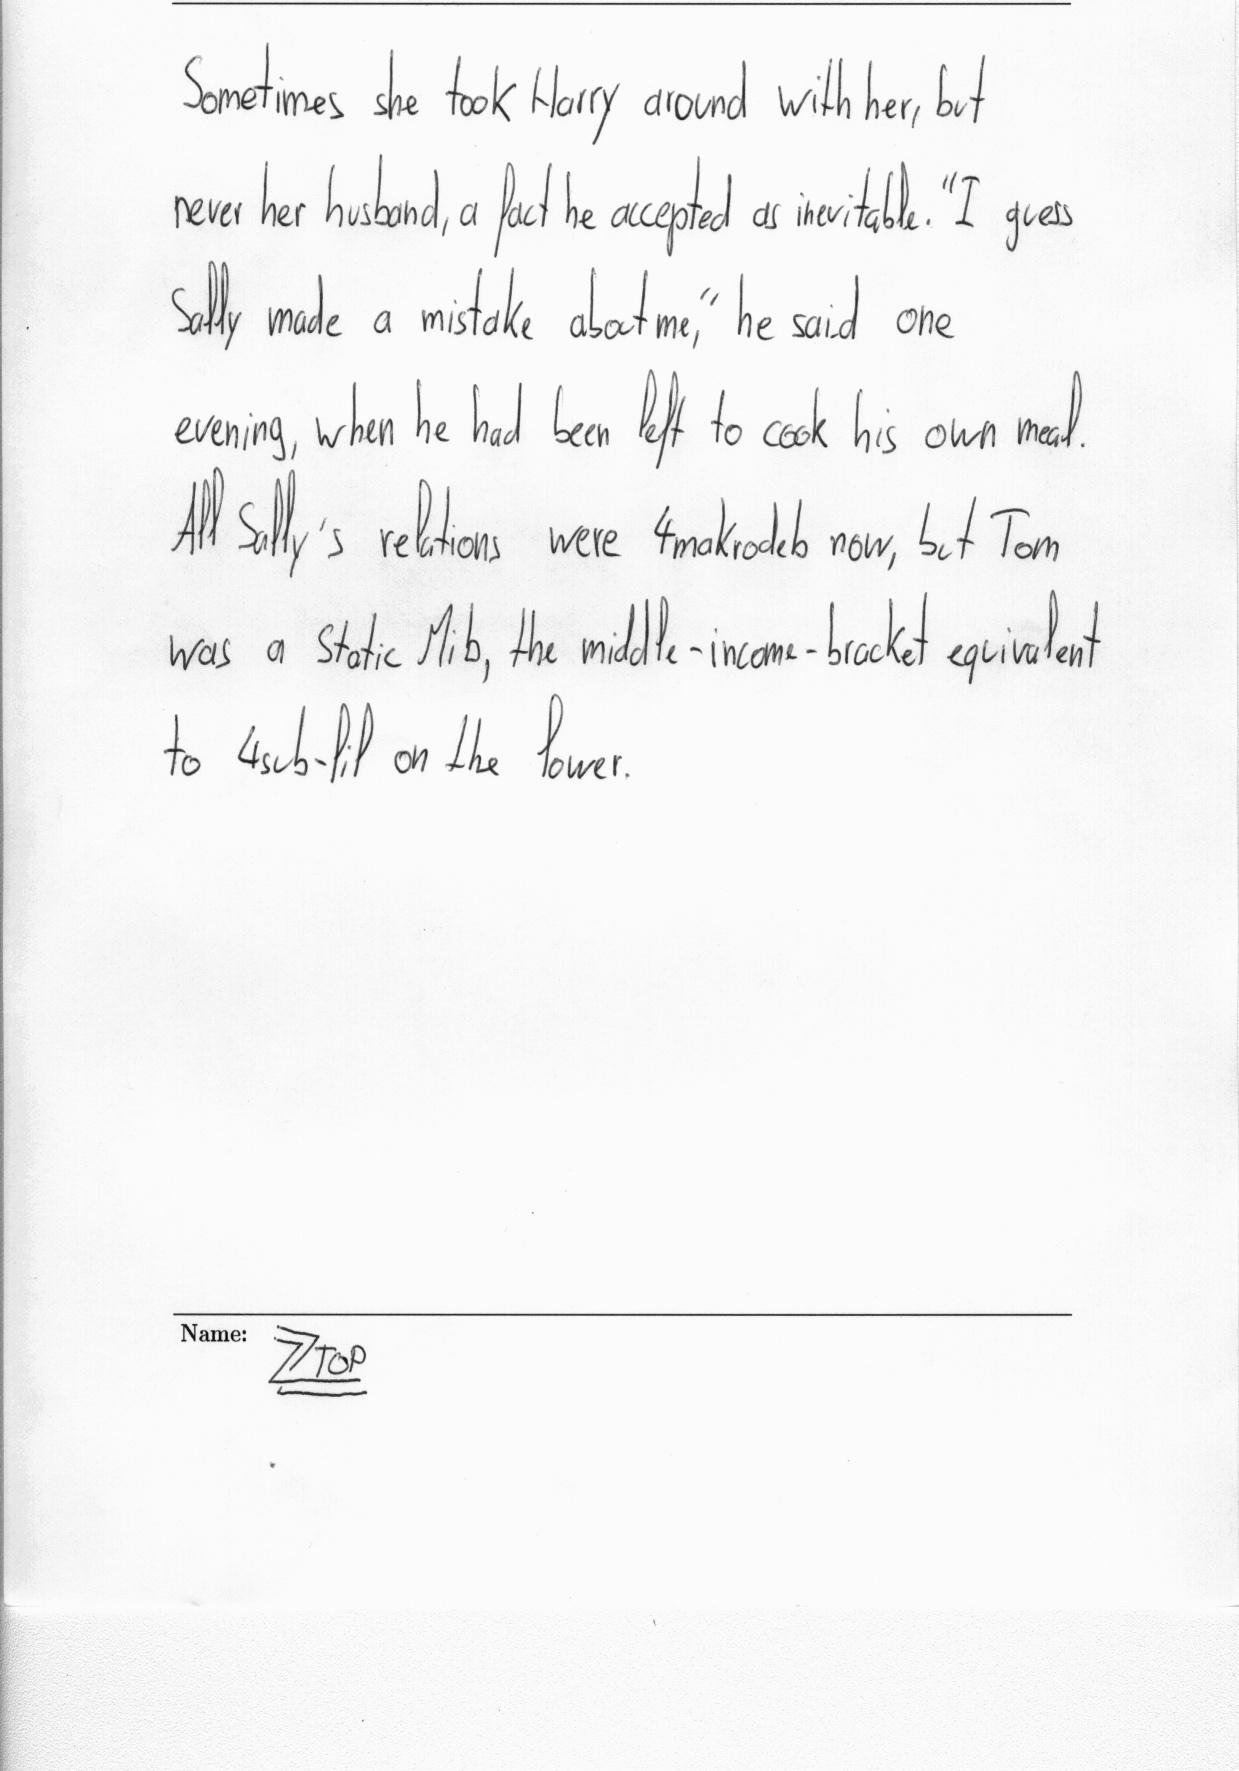 Sometimes she took Harry around with her, but
never her husband, a fact he accepted as inevitable. "I guess
Sally made a mistake about me," he said one
evening, when he had been left to cook his own meal.
All Sally's relations were 4makrodeb now, but Tom
was a Static Mib, the middle-income-bracket equivalent
to 4sub-lil on the lower.
Name: ZZTOP